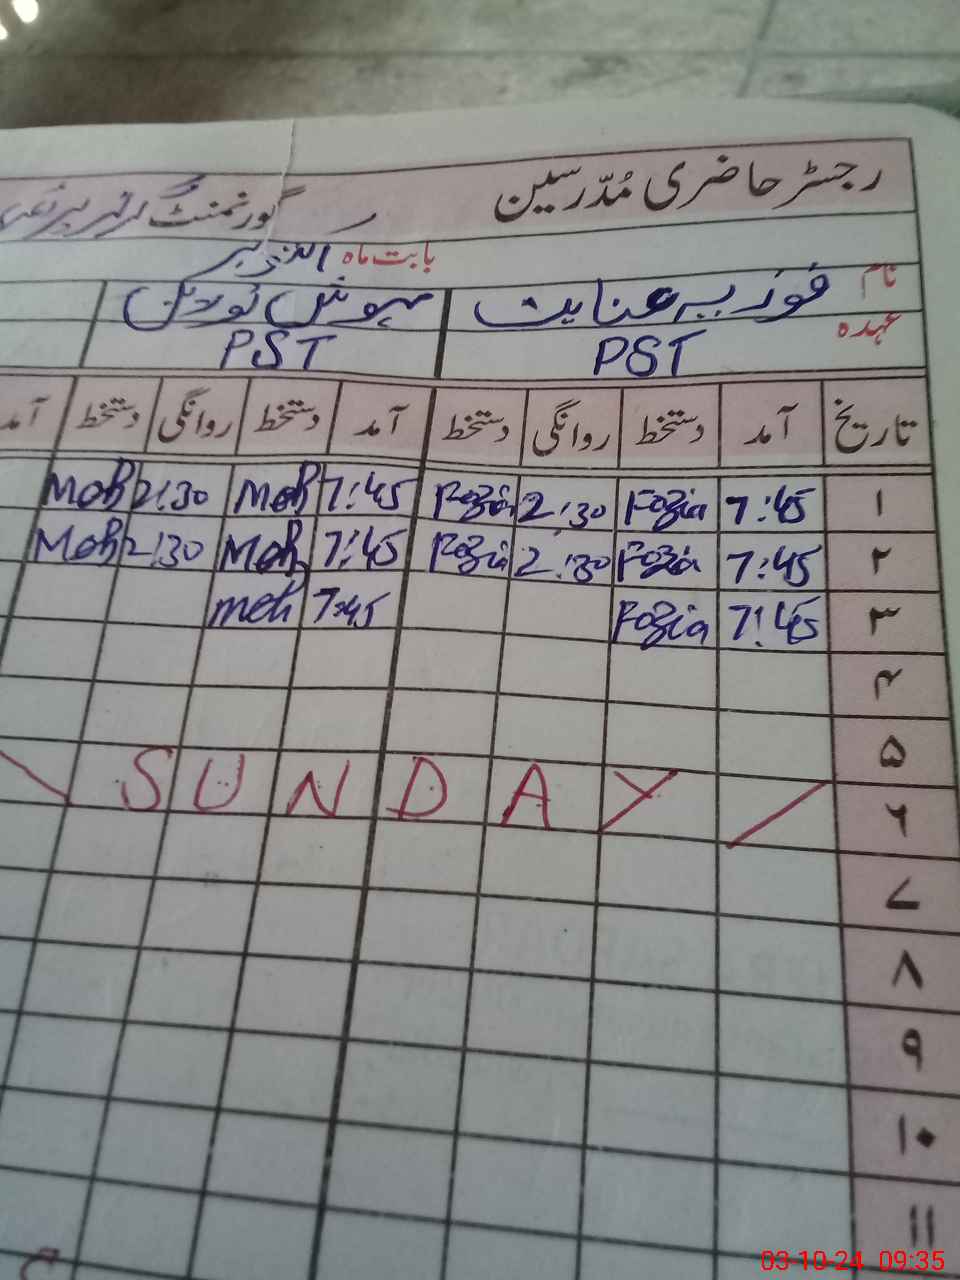 رجسٹر حاضری مُدّرسین گورنمنٹ
بابت ماہ اکتوبر
نام فوزیہ عنایت مہوش
عہدہ PST PST
تاریخ آمد دستخط روانگی دستخط آمد دستخط روانگی دستخط آمد
۱ 7:45 Fozia 2:30 Fozia 7:45 Meh 2:30 Meh
۲ 7:45 Fozia 2:30 Fozia 7:45 Meh 2:30 Meh
۳ 7:45 Fozia 7:45 meh
۴
۵
۶ SUNDAY
۷
۸
۹
۱۰
۱۱
03-10-24 09:35